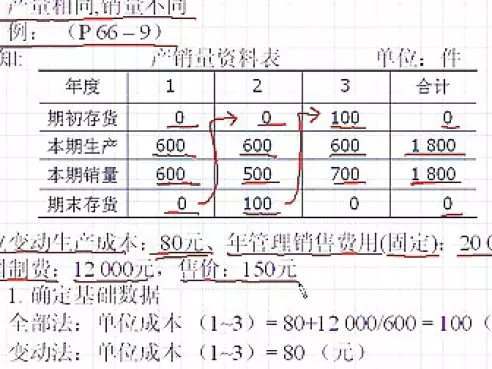 产量相同,销量不同
例：（P 66 – 9）
知: 产销量资料表 单位：件
年度 1 2 3 合计
期初存货 0 0 100 0
本期生产 600 600 600 1 800
本期销量 600 500 700 1 800
期末存货 0 100 0 0
变动生产成本：80元、年管理销售费用(固定)：20 0
制费：12 000元，售价：150元
1. 确定基础数据
全部法：单位成本（1~3）= 80+12 000/600 = 100（
变动法：单位成本（1~3）= 80（元）